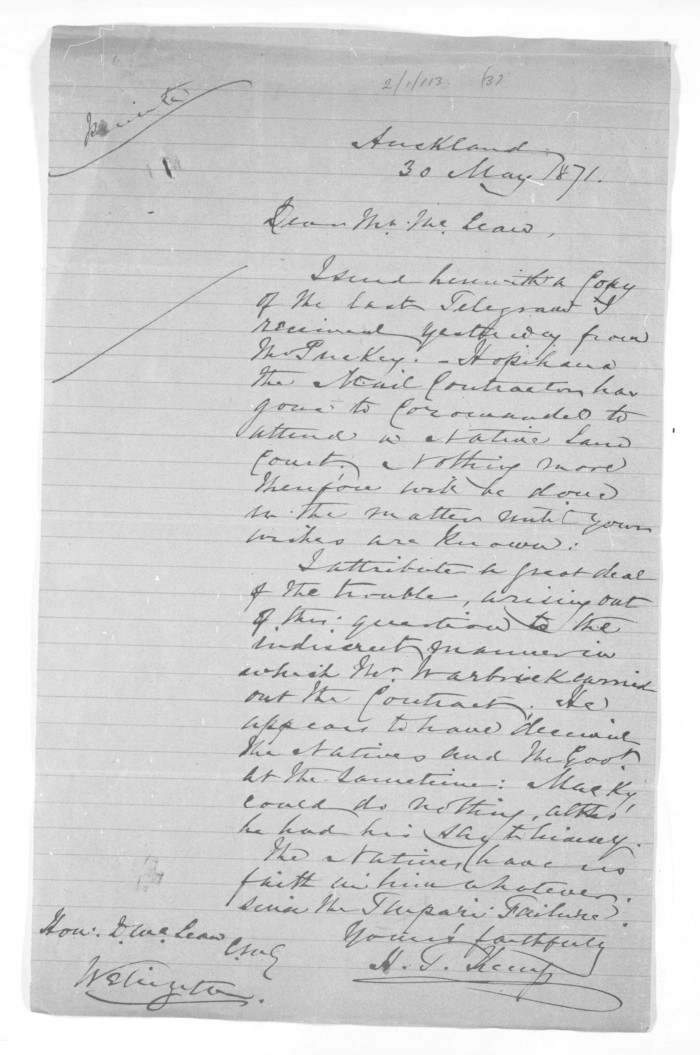 2/1/113. (3)
private
Auckland
30 May 1871.
Dear Mr. Mc Lean,
I send herewith a Copy
of the last Telegram I
received yesterday from
Mr Puckey. - Hopihana
the Mail Contractor, has
gone to Coromandel to
attend a Native Land
Court. Nothing more
therefore will be done
in the matter until your
wishes are known:
I attribute a great deal
of the trouble, arising out
of this question to the
indiscreet manner in
which Mr. Warbrick carried
out the Contract. He
appears to have deceived
the Natives and the Govt.
at the sametime: Macky
could do nothing, altho'
he had his say to himself.
The Natives, have no
faith in him whatever.
since the Failure.
Yours faithfully
H. T. Kemp
Hon: D. Mc Lean
C.M.G
Wellington.